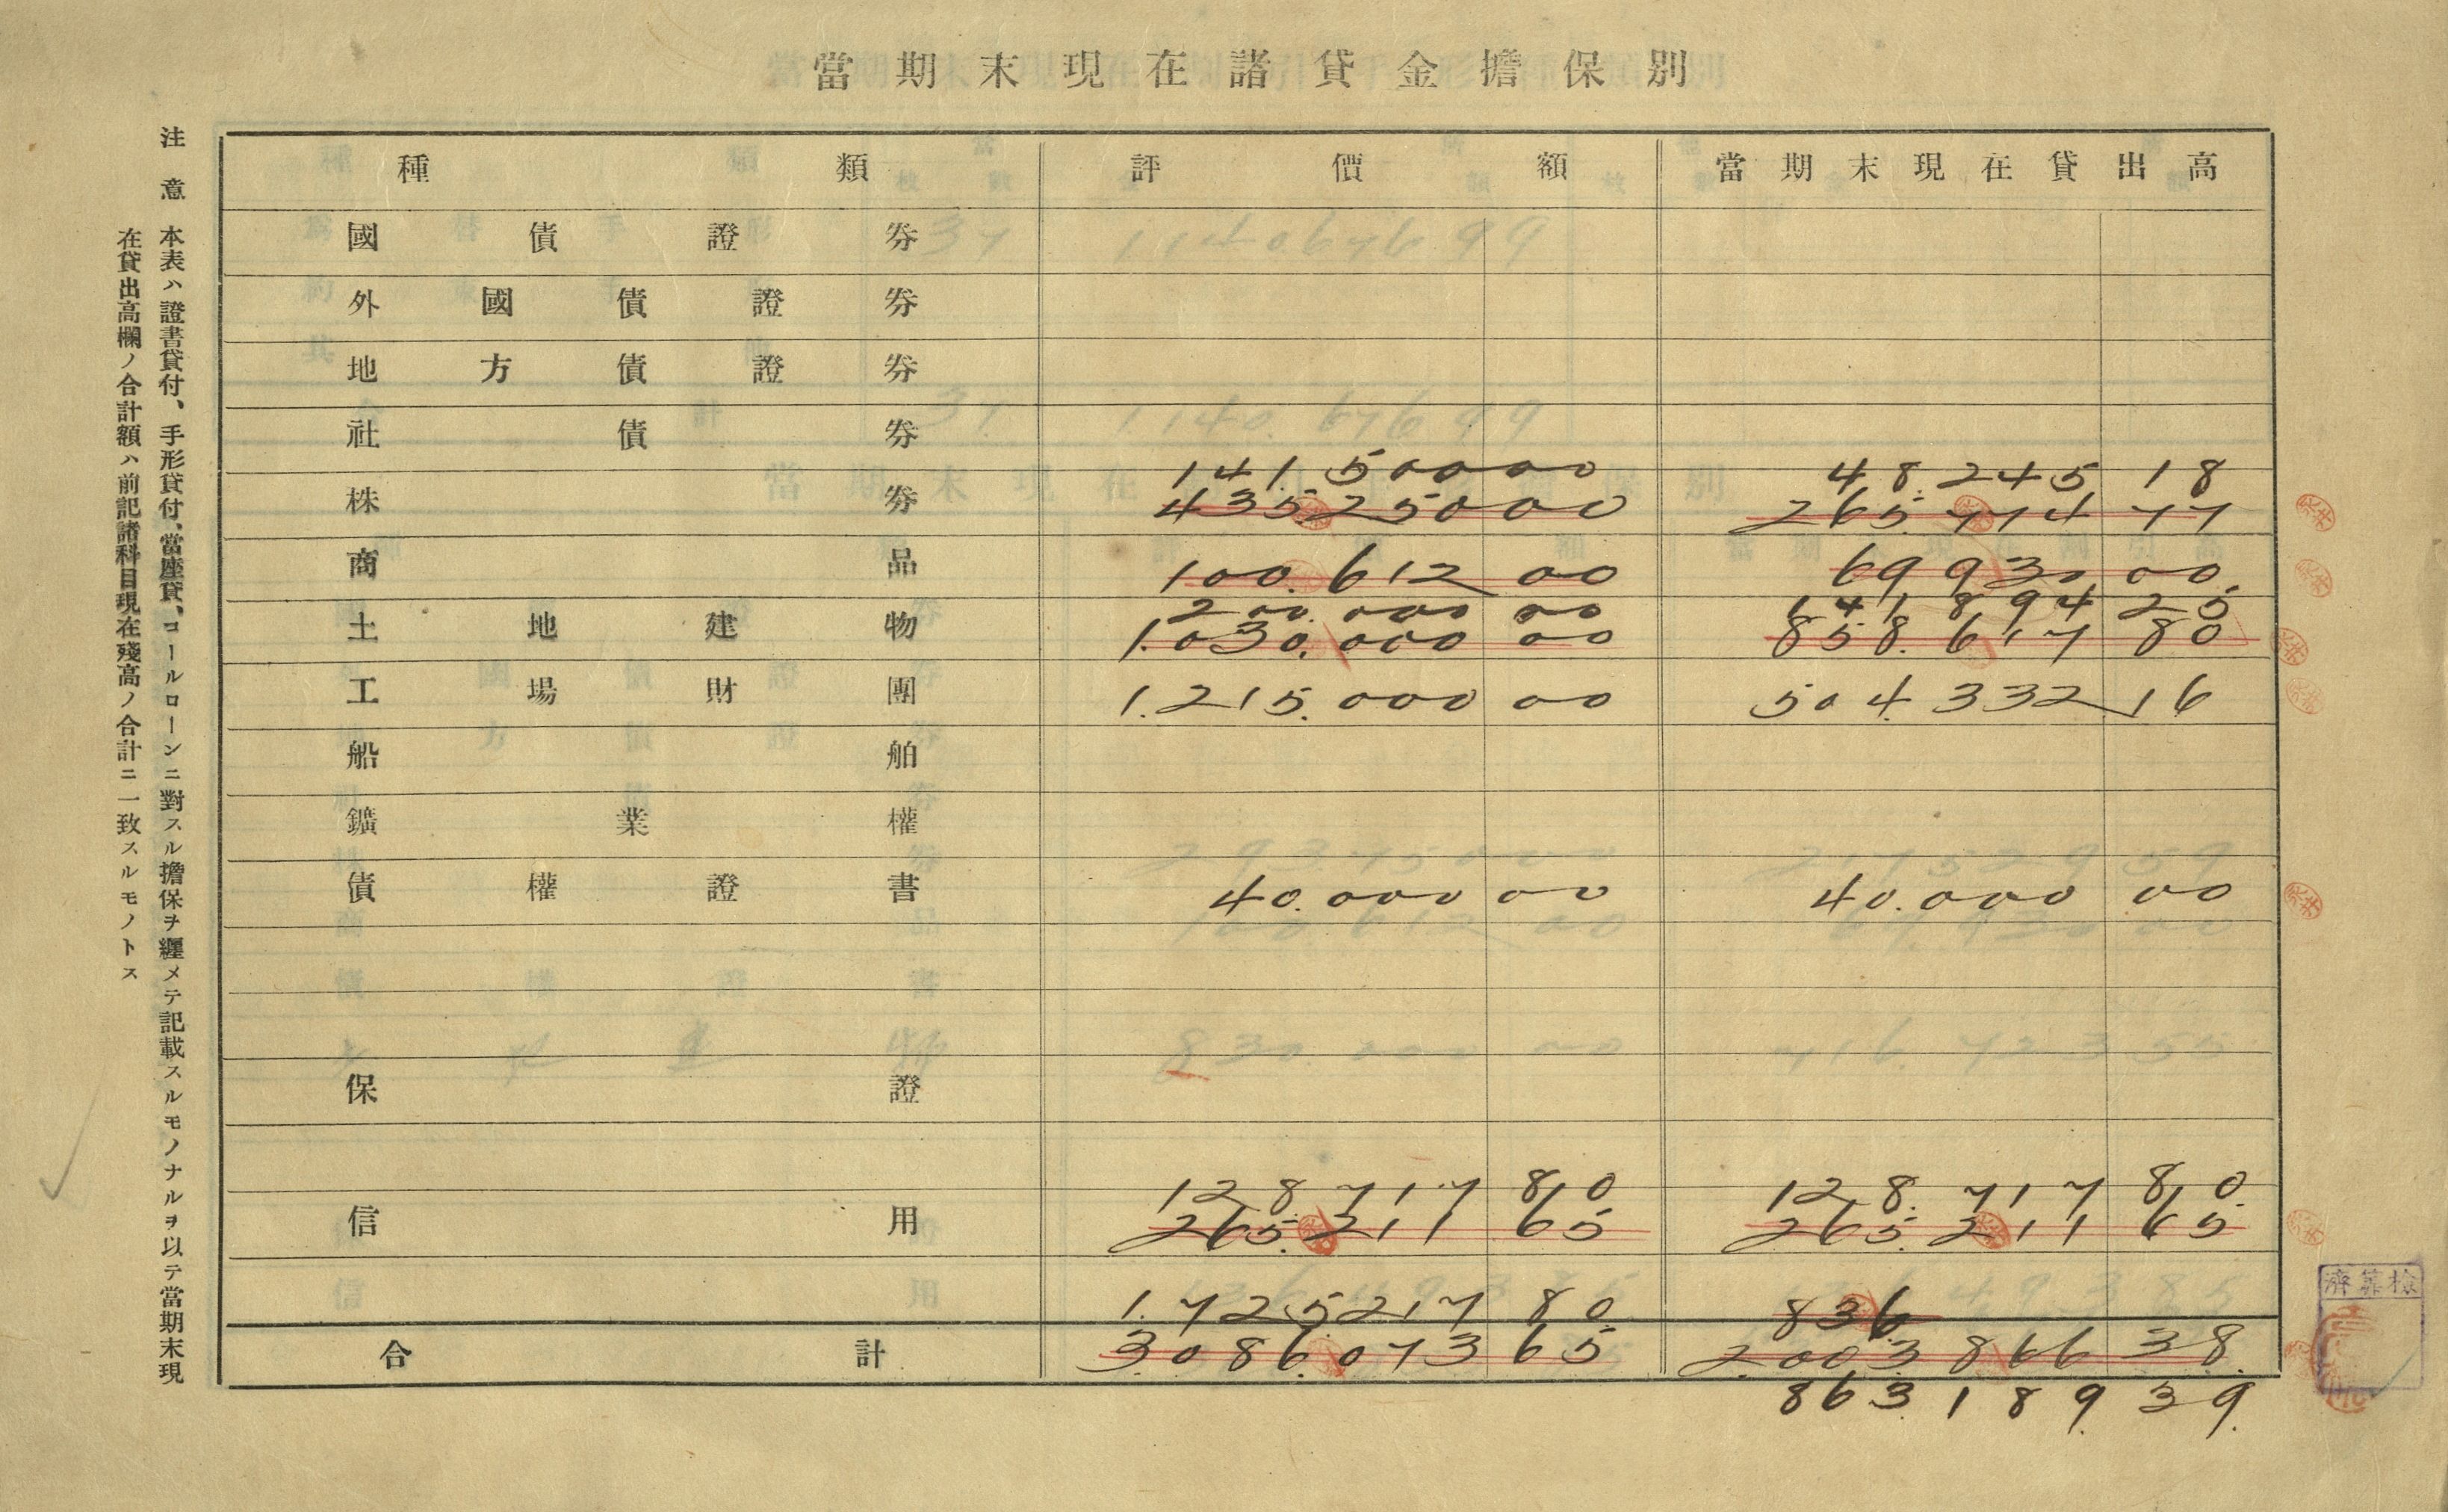 當期末現在諸貸金擔保別
種類 評價額 當期末現在貸出高
國債證券
外國債證券
地方債證券
社債券
141.500 00 48.245 18
株券 435.250 00 265.774 77
商品 100.612 00 69.930 00
200.000 00 141.894 25
土地建物 1.030.000 00 858.617 80
工場財團 1.215.000 00 504.332 16
船舶
鑛業權
債權證書 40.000 00 40.000 00
保證
128.717 80 128.717 80
信用 265.211 65 265.211 65
1.725.217 80 836
合計 3.086.073 65 2.003.866 38
863.189 39
注意 本表ハ證書貸付、手形貸付、當座貸、コールローンニ對スル擔保ヲ纒メテ記載スルモノナルヲ以テ當期末現
在貸出高欄ノ合計額ハ前記諸科目現在殘高ノ合計ニ一致スルモノトス
檢算濟